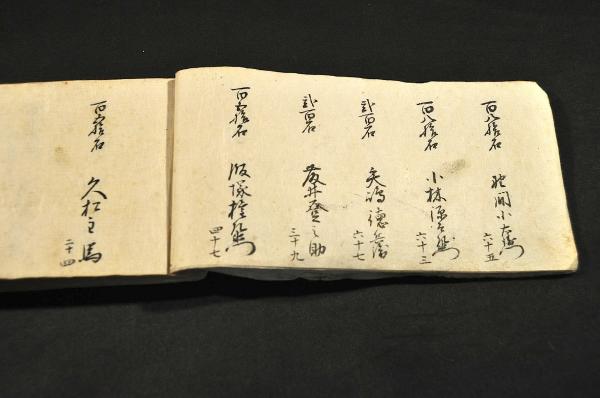 百八拾石
小左衛門
六十五
百八拾石
小林源左衛門
六十三
弐百石
矢嶋徳兵衛
六十七
弐百石
藤井登之助
三十九
百五拾石
飯塚権左衛門
四十七
百五拾石
久松主馬
二十四